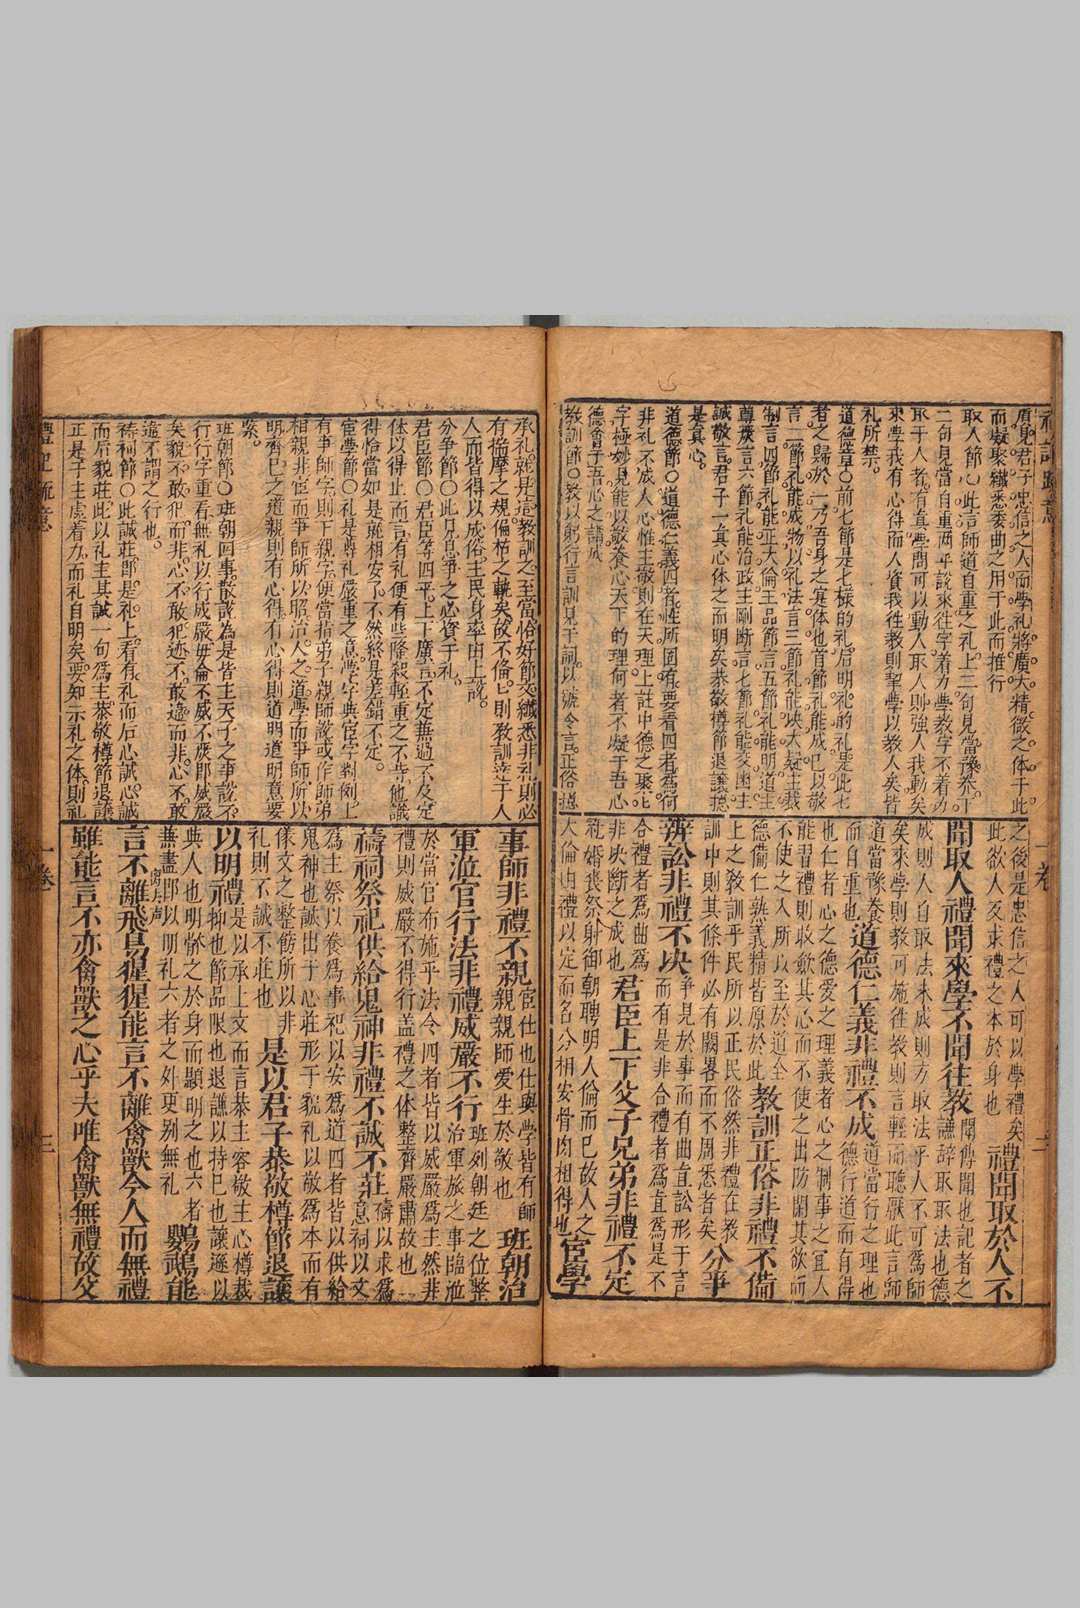 而凝聚纖悉委曲之用于此而推行
取人節○此言師道自重之禮上二句見當豫恭下
二句見當自重兩平說來往字着力學教字不着力
取于人者有真學問可以動人取人則強人我動矣
來學我有心得而人資我往教則望學以教人矣皆
礼所禁
道德章○前七節是七樣的礼后明礼的礼要此七
者之歸於一乃吾身之定体也首節礼能成已以敬
言二節礼能成物以礼法言三節礼能决大疑主裁
制言四節礼能正大倫主品節言五節礼能明道主
尊嚴言六節礼能治政主剛断言七節礼能交幽主
誠敬言君子一真心体之而明矣恭敬樽節退讓摠
是真心
道德節○道德仁義四者性所固有要看四者為何
非礼不成人心惟主敬則在天理上註中德之聚
字極妙見能以敬養心天下的理何者不凝于吾心
德會于吾心之謂成
教訓節○教以躬行言訓見于詞以號令言正俗摠
之後是忠信之人可以學禮矣
此欲人反求禮之本於身也 禮聞取於人不
聞取人禮聞來學不聞往教
成則人自取法未成則方取法乎人不可為師
矣來學則教可施往教則言輕而聽厭此言師
道當豫養
而自重也 道德仁義非禮不成
也仁者心之德愛之理義者心之制事之宜人
能習禮則收歛其心而不使之出防閑其欲而
不使之入所以至於道全
德備仁熟義精皆原於此 教訓正俗非禮不備
上之教訓乎民所以正民俗然非禮在教
訓中則其條件必有闕畧而不周悉者矣 分爭
辨訟非禮不決 爭見於事而有曲直訟形于言
而有是非合禮者為直為是不
合禮者為曲為
非決断之成也 君臣上下父子兄弟非禮不定
社婚喪祭射御朝聘明人倫而已故人之
大倫由禮以定而名分相安骨肉相得也 宦學
承礼就是這教訓之至當恰好節文纖悉非礼則必
有揣摩之規偏枯之轍矣故不俻匕則教訓達于人
人而皆得以成俗主民身率由上說
分爭節○此見息爭之必資于礼
君臣節○君臣等四平上下廣言不定無過不及定
体以得止而言有礼便有些隆殺軽重之不苟他議
得恰當如是就相安了不然終是差錯不定
宦學節○礼是尊礼嚴重之意學字與宦字對例上
有事師字則下親字便當指弟子親師說或作師弟
相親非宦而事師所以昭治人之道學而事師所以
明脩已之道親則有心得有心得則道明道明意要
察
班朝節○班朝四事散說為是皆主天子之事說不
行行字重看無礼以行成嚴毋論不威不嚴即威嚴
矣貌不敢犯而非心不敢犯迹不敢違而非心不敢
違不謂之行也
禱祠節○此誠莊即是礼上看有礼而后心誠心誠
而后貌莊此以礼主其誠一句為主恭敬樽節退讓
正是子主處着力而礼自明矣要知示礼之体則礼
事師非禮不親 宦仕也仕與學皆有師
親親師愛生於敬也 班朝治
軍涖官行法非禮威嚴不行 班列朝廷之位整
治軍旅之事臨涖
於當官布施乎法令四者皆以威嚴為主然非
禮則威嚴不得行盖禮之体整齊嚴肅故也
禱祠祭祀供給鬼神非禮不誠不莊 禱以求為
意祠以文
為主祭以養為事祀以安為道四者皆以供給
鬼神也誠出于心莊形于貌礼以敬為本而有
儀文之整飭所以非
礼則不誠不莊也 是以君子恭敬樽節退讓
以明禮 是以承上文而言恭主容敬主心樽裁
抑也節品限也退謙以持已也讓遜以
與人也明悕之於身而顯明之也六者
無盡即以明礼六者之外更别無礼 鸚鵡能
言不離飛鳥猩猩能言不離禽獸今人而無禮
雖能言不亦禽獸之心乎夫唯禽獸無禮故父